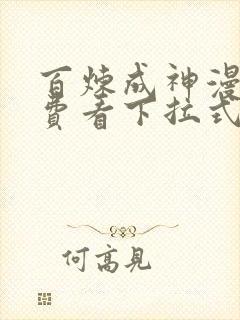 百炼成神漫
费看下拉式
何高見